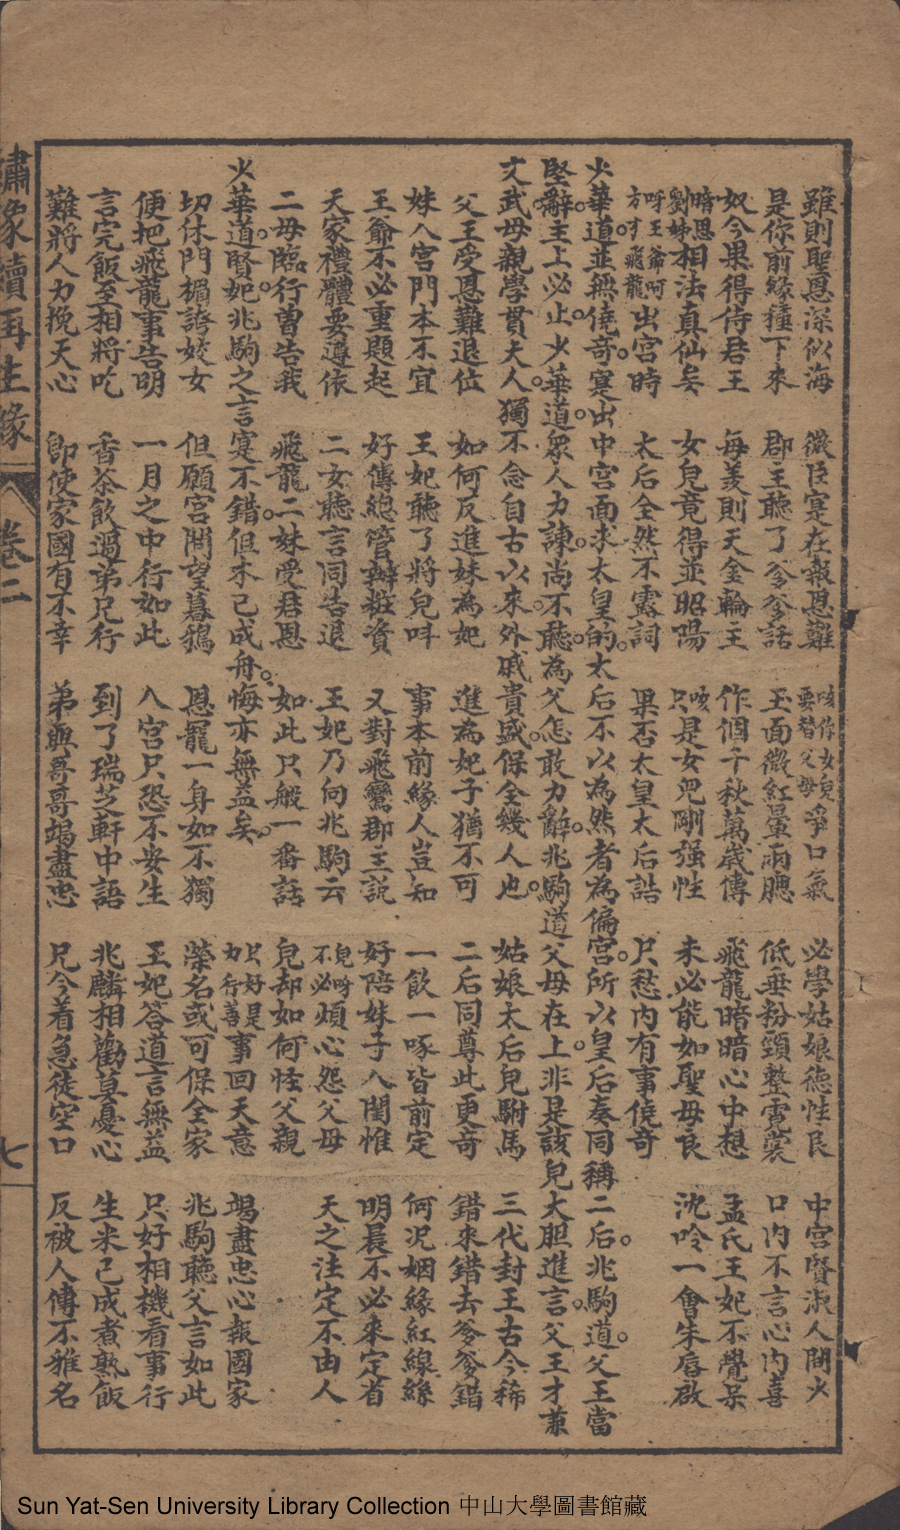 雖則聖恩深似海　微臣寔在報恩難　咳你女兒要替父母爭口氣　必學姑娘德性良　中宮賢淑人間少
是你前緣種下來　郡主聽了爹爹話　玉面微紅暈兩腮　低垂粉頸整霓裳　口內不言心內喜
奴今果得侍君王　每羨則天金輪主　作個千秋萬歲傳　飛龍暗暗心中想　孟氏王妃不覺呆
暗思劉姊相法真仙矣　女兒竟得並昭陽　咳只是女兒剛强性　未必能如聖母良　沈吟一會朱唇啟
呀王爺呵方才飛龍出宮時　太后全然不露詞　果否太皇太后誥　只愁內有事僥奇
少華道並無僥奇寔出中宮面求太皇的太后不以為然者為偏宮所以皇后奏同稱二后兆駒道父王當
堅辭主上必止少華道眾人力諫尚不聽為父怎敢力辭兆駒道父母在上非是該兒大胆進言父王才兼
文武母親學貫夫人獨不念自古以來外戚貴盛保全幾人也　姑娘太后兒駙馬　三代封王古今稀
父王受恩難退位　如何反進妹為妃　進為妃子猶不可　二后同尊此更奇　錯來錯去爹爹錯
妹入宮門本不宜　王妃聽了將兒呌　事本前緣人豈知　一飲一啄皆前定　何况姻緣紅線絲
王爺不必重題起　好傳總管辦粧資　又對飛鸞郡主說　好陪妹子入閨惟　明晨不必來定省
天家禮體要遵依　二女聽言同告退　王妃乃向兆駒云　兒呀不必煩心怨父母　天之注定不由人
二母臨行曾告我　飛龍二妹受君恩　如此只般一番話　兒却如何怪父親
少華道賢妃兆駒之言寔不錯但木已成舟悔亦無益矣　只好是如行善事回天意　竭盡忠心報國家
切休門楣誇姣女　但願宮闈望暮鴉　恩寵一身如不獨　榮名或可保全家　兆駒聽父言如此
便把飛龍事告明　一月之中行如此　入宮只恐不安生　王妃答道言無益　只好相機看事行
言完飯至相將吃　香茶飲過弟兄行　到了瑞芝軒中語　兆麟相勸莫憂心　生米已成煮熟飯
難將人力挽天心　卽使家國有不幸　弟與哥哥竭盡忠　兄今着急徒空口　反被人傳不雅名
繡像續再生緣　卷二　七
Sun Yat-Sen University Library Collection 中山大學圖書館藏